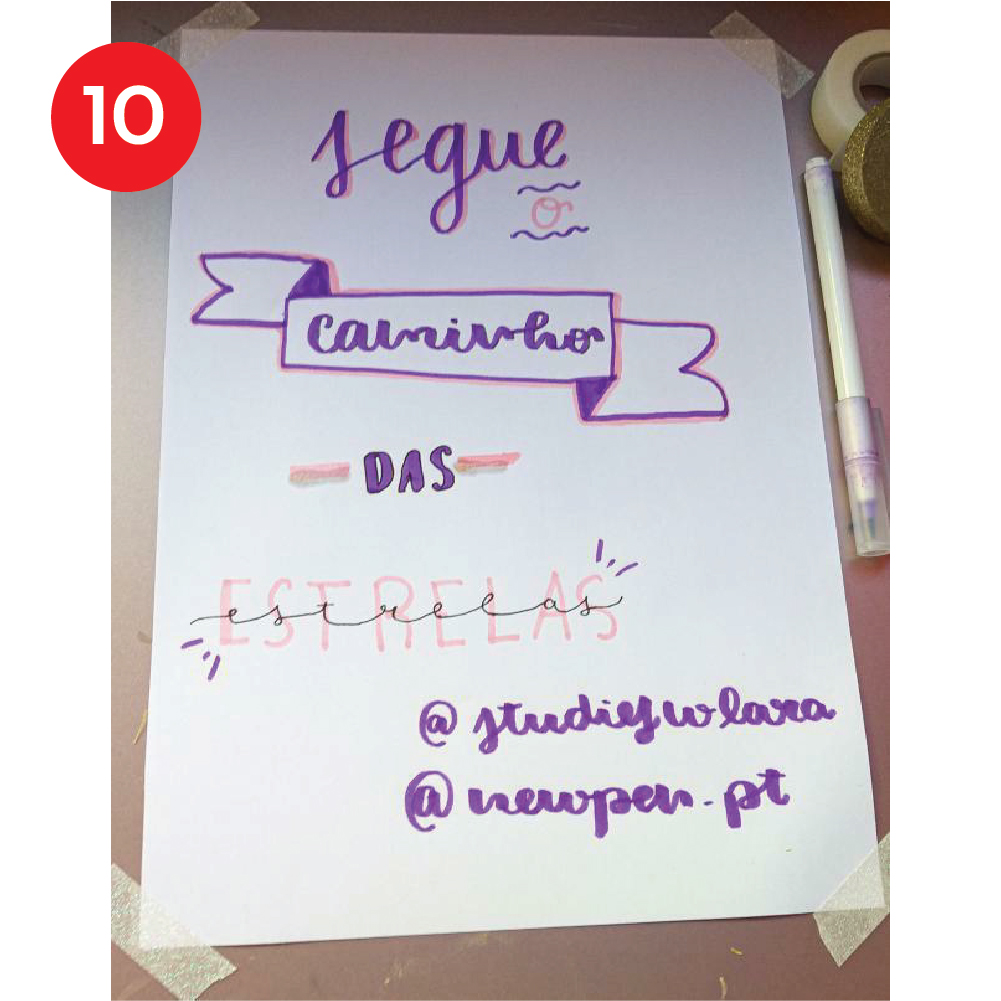 10
segue
o
caminho
DAS
ESTRELAS
estrelas
@studieswlara
@newpen.pt